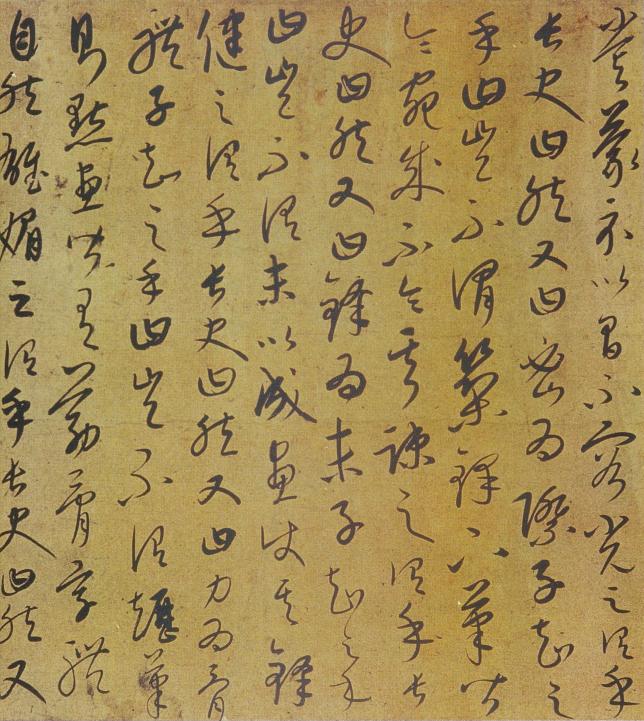 嘗蒙示以間不容光之謂乎
長史曰然又曰密為際子知之
乎曰豈不謂築鋒下筆皆
令宛成不令其疎之謂乎長
史曰然又曰鋒為末子知之乎
曰豈不謂末以成畫使其鋒
健之謂乎長史曰然又曰力為骨
體子知之乎曰豈不謂趯筆
則點畫皆有筋骨字體
自然雄媚之謂乎長史曰然又